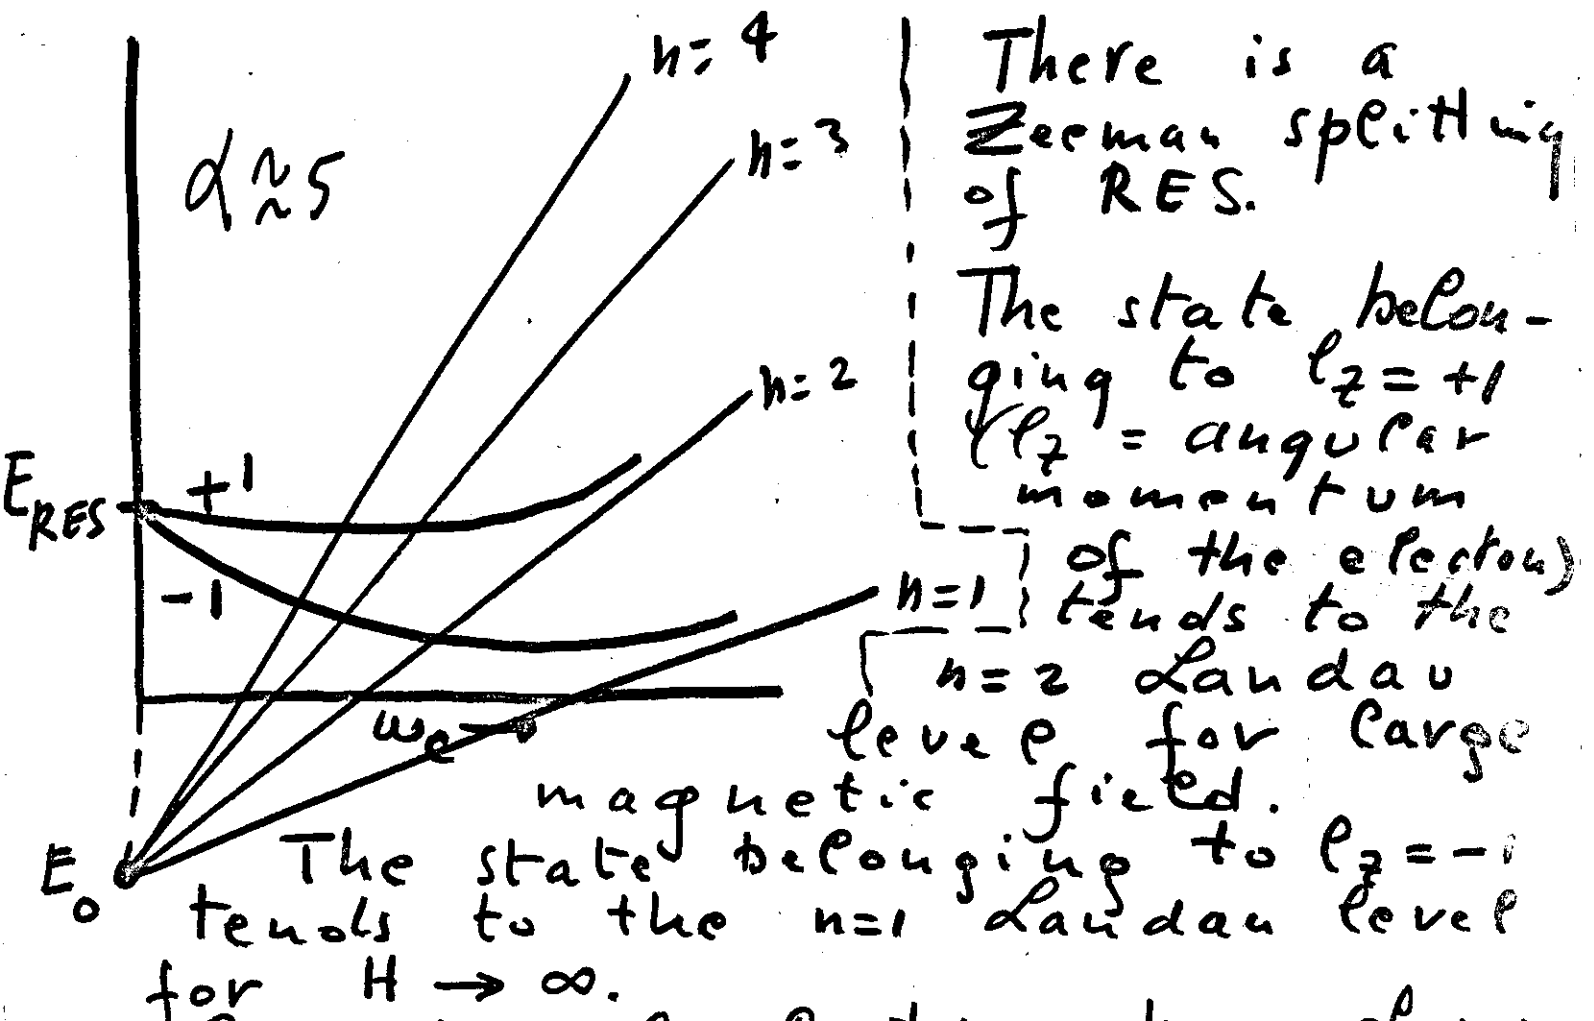 n=4
There is a
n=3
Zeeman splitting
α≈5
of RES.
The state belon-
n=2
ging to l_z = +1
(l_z = angular
E_RES
+1
momentum
of the electon)
-1
n=1
tends to the
n=2 Landau
ω_c→
level for large
magnetic field.
E_0
The state belonging to l_z = -1
tends to the n=1 Landau level
for H → ∞.